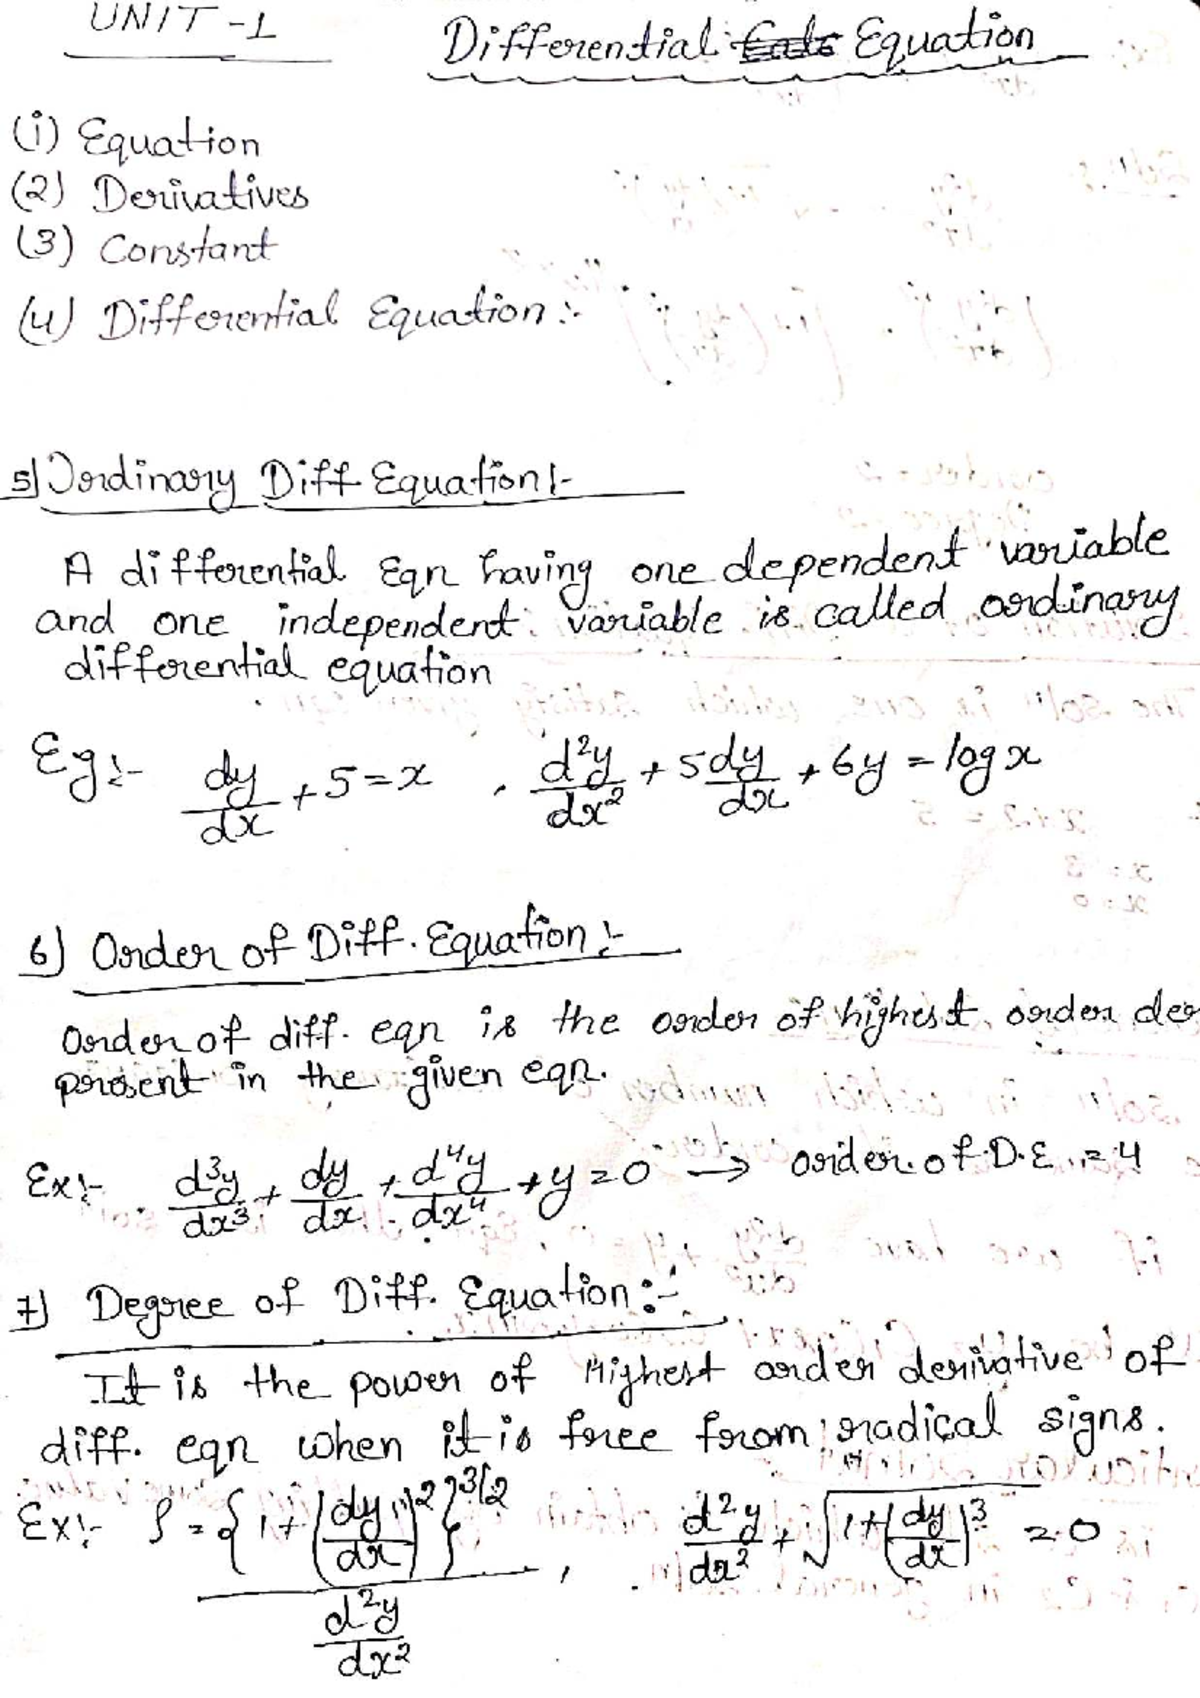 UNIT-1
Differential Equation
(i) Equation
(2) Derivatives
(3) Constant
(4) Differential Equation :-
5) Ordinary Diff Equation :-
A differential Eqn having one dependent variable
and one independent variable is called ordinary
differential equation
Eg :- dy/dx + 5 = x , d²y/dx² + 5dy/dx + 6y = log x
6) Order of Diff. Equation :-
Order of diff. eqn is the order of highest order der
present in the given eqn.
Ex :- d³y/dx³ + dy/dx + d⁴y/dx⁴ + y = 0 → order of D.E. = 4
7) Degree of Diff. Equation :-
It is the power of Highest order derivative of
diff. eqn when it is free from radical signs.
Ex :- ρ = {1+(dy/dx)²}^3/2 / d²y/dx² , d²y/dx² + √1+(dy/dx)³ = 0